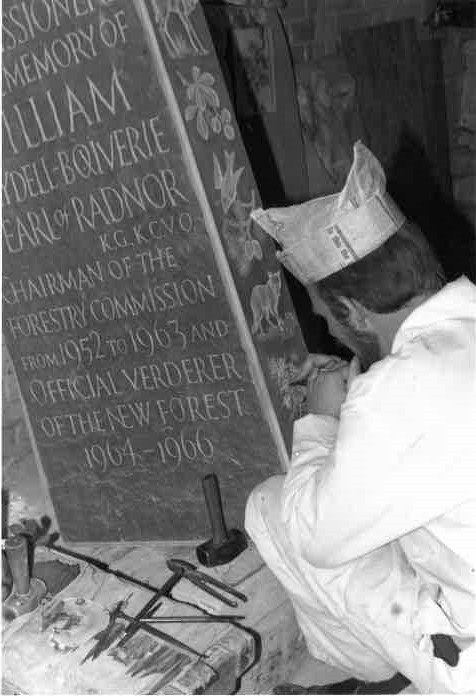 MEMORY OF
ILLIAM
YDELL-BOUVERIE
EARL of RADNOR
K.G. K.C.V.O.
CHAIRMAN OF THE
FORESTRY COMMISSION
FROM 1952 TO 1963 AND
OFFICIAL VERDERER
OF THE NEW FOREST
1964-1966